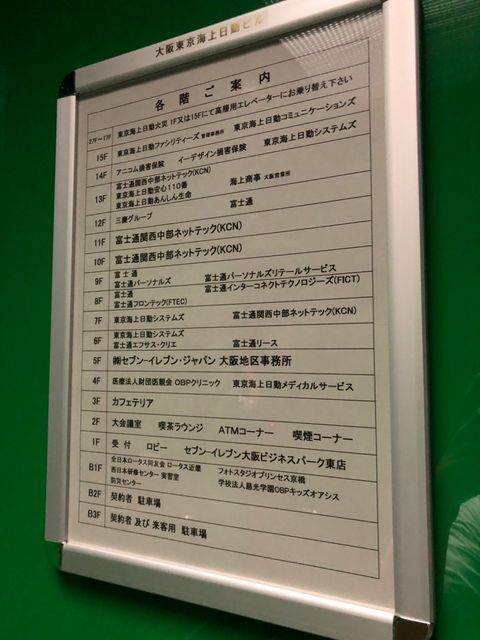 大阪東京海上日動ビル
各階ご案内
27F～17F 東京海上日動火災 1F又は15Fにて高層用エレベーターにお乗り替え下さい
15F 東京海上日動ファシリティーズ 管理事務所 東京海上日動コミュニケーションズ
14F アニコム損害保険 イーデザイン損害保険 東京海上日動システムズ
13F 富士通関西中部ネットテック(KCN)
東京海上日動安心110番 海上商事 大阪営業所
東京海上日動あんしん生命
12F 三慶グループ 富士通
11F 富士通関西中部ネットテック(KCN)
10F 富士通関西中部ネットテック(KCN)
9F 富士通
富士通パーソナルズ 富士通パーソナルズリテールサービス
8F 富士通 富士通インターコネクトテクノロジーズ(FICT)
富士通フロンテック(FTEC)
7F 東京海上日動システムズ 富士通関西中部ネットテック(KCN)
6F 東京海上日動システムズ
富士通エフサス・クリエ 富士通リース
5F ㈱セブン-イレブン・ジャパン 大阪地区事務所
4F 医療法人財団医親会 OBPクリニック 東京海上日動メディカルサービス
3F カフェテリア
2F 大会議室 喫茶ラウンジ ATMコーナー 喫煙コーナー
1F 受付 ロビー セブン-イレブン大阪ビジネスパーク東店
B1F 全日本ロータス同友会 ロータス近畿 フォトスタジオプリンセス京橋
西日本研修センター 実習室 学校法人慈光学園OBPキッズオアシス
防災センター
B2F 契約者 駐車場
B3F 契約者 及び 来客用 駐車場